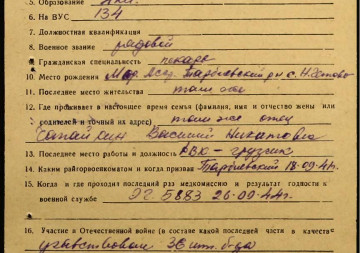 5. Образование
6. На ВУС 134
7. Должностная квалификация
8. Военное звание рядовой
9. Гражданская специальность пекарь
10. Место рождения Мор. Асср. Торбеевский рн с.
11. Последнее место жительства там же
12. Где проживает в настоящее время семья (фамилия, имя и отчество жены или
родителей и точный их адрес) там же отец
Василий
13. Последнее место работы и должность РВК - грузчик
14. Каким райгорвоенкоматом и когда призван Торбеевский 18-09-41г.
15. Когда и где проходил последний раз медкомиссию и результат годности к
военной службе ЭГ 5883 26-09-44г.
16. Участие в Отечественной войне (в составе какой последней части и в качеств
участвовал 36